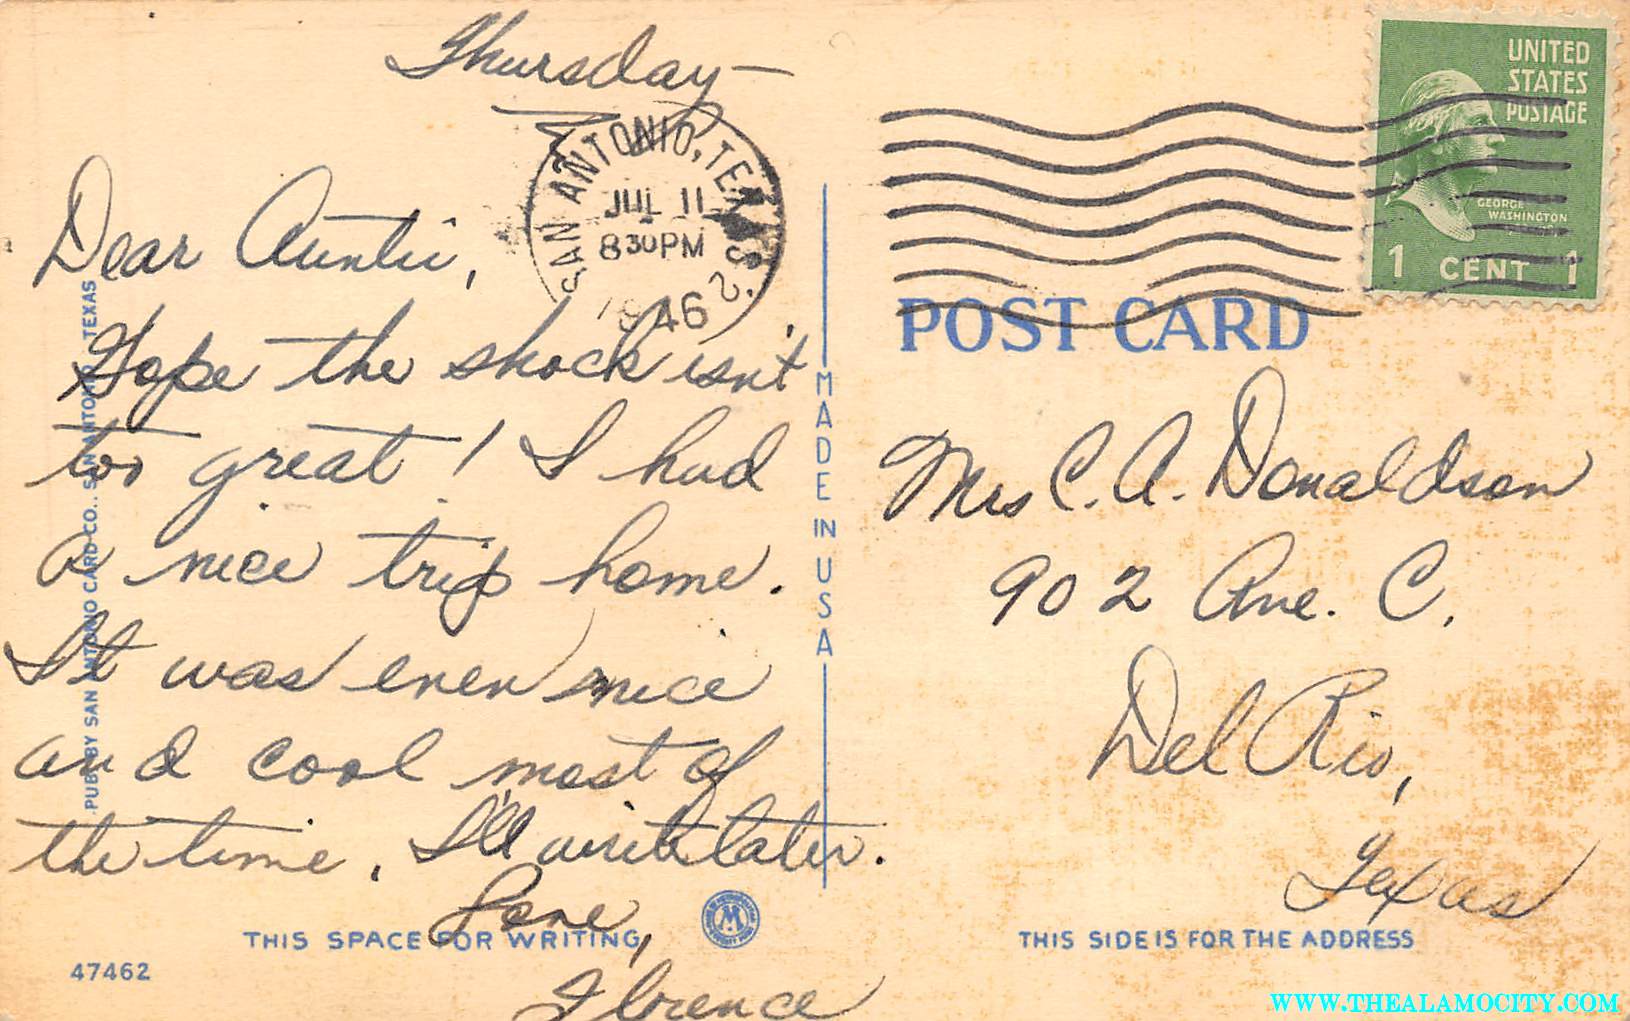 Thursday—
Dear Auntie,
Hope the shock isn't
too great! I had
a nice trip home.
It was even nice
and cool most of
the time. I'll write later.
Love,
Florence
SAN ANTONIO, TEXAS 2
JUL 11
8 30 PM
1946
UNITED
STATES
POSTAGE
GEORGE
WASHINGTON
1 CENT 1
POST CARD
Mrs C. A. Donaldson
902 Ave. C.
Del Rio,
Texas
PUB. BY SAN ANTONIO CARD CO., SAN ANTONIO, TEXAS
MADE IN USA
THIS SPACE FOR WRITING
THIS SIDE IS FOR THE ADDRESS
47462
WWW.THEALAMOCITY.COM